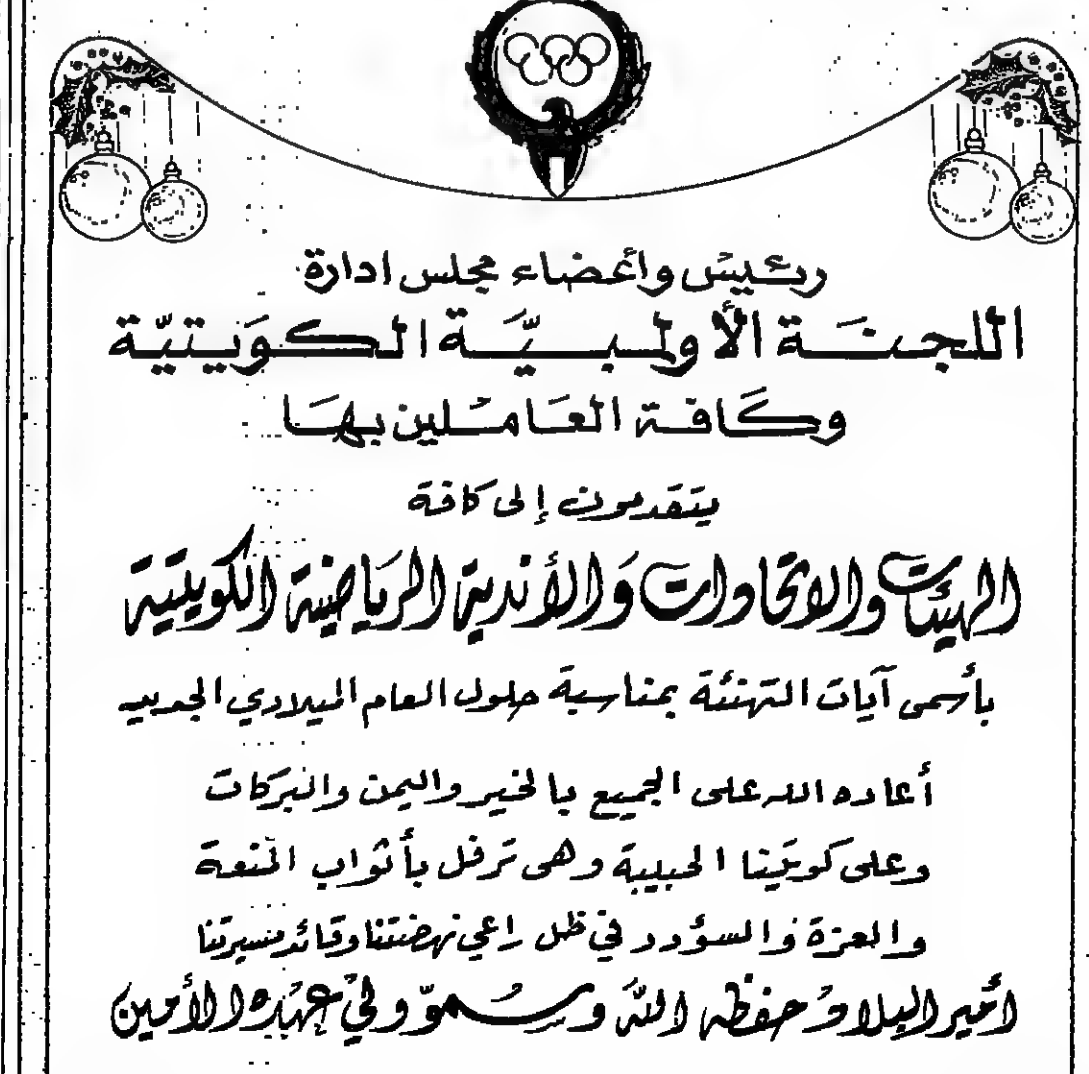 رئيس وأعضاء مجلس ادارة
اللجنة الأولمبية الكويتية
وكافة العاملين بها
يتقدمون إلى كافة
الهيئات والاتحادات والأندية الرياضية الكويتية
بأسمى آيات التهنئة بمناسبة حلول العام الميلادي الجديد
أعاده الله على الجميع بالخير واليمن والبركات
وعلى كويتنا الحبيبة وهي ترفل بأثواب المنعة
والعزة والسؤدد في ظل راعي نهضتنا وقائد مسيرتنا
أمير البلاد حفظه الله وسمو ولي عهده الأمين